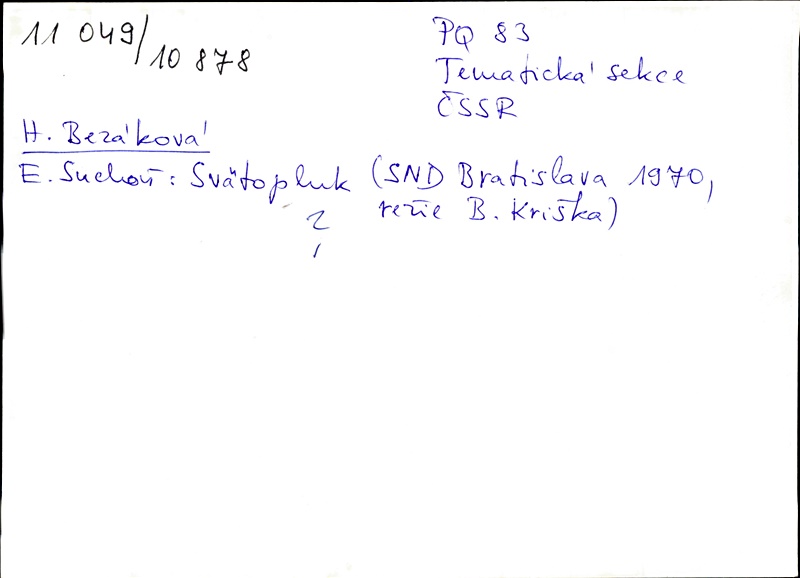 11 049/10 878
PQ 83
Tematická sekce
ČSSR
H. Bezáková
E. Suchoň: Svätopluk (SND Bratislava 1970,
režie B. Kriška)
?